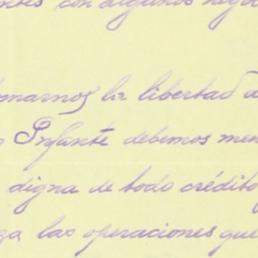 con algunos
la libertad
Infante debemos
digna de todo crédito
las operaciones que